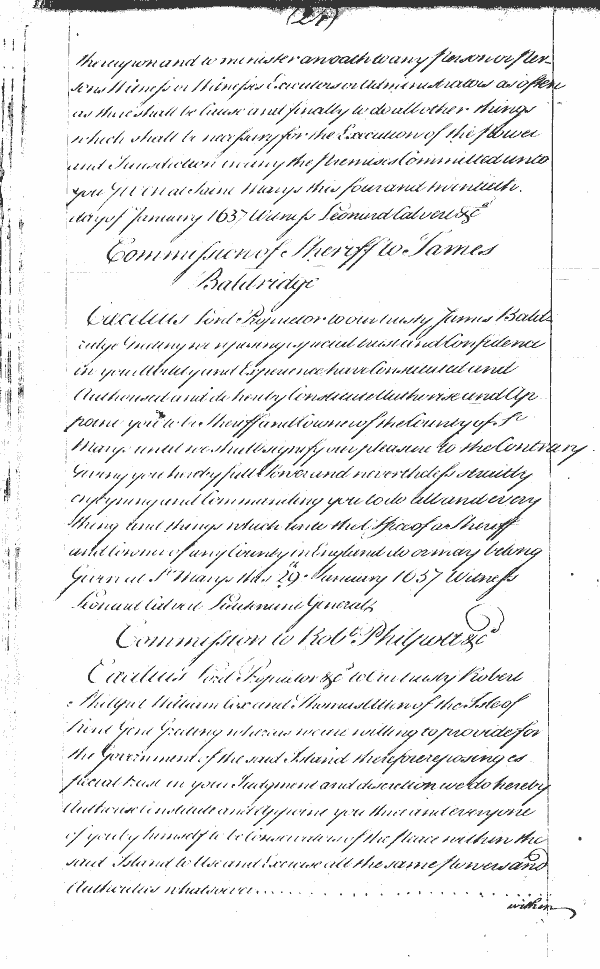 (24)
thereupon and to minister an oath to any Person or Per-
sons Witness or Witnesses Executors or Administrators as often
as there shall be Cause and finally to do all other things
which shall be necessary for the Execution of the power
and Jurisdiction in any the premises Committed unto
you Given at Saint Marys this four and twentieth
day of January 1637 Witness Leonard Calvert &ca
Commission of Sheriff to James
Baldridge
Cecilius Lord Proprietor to our trusty James Bald-
ridge Greeting we reposing especial trust and Confidence
in your fidelity and Experience have Constituted and
Authorised and do hereby Constitute Authorise and Ap
point you to be Sheriff and Coroner of the County of St
Marys until we shall signify our pleasure to the Contrary
Giving you hereby full Power and nevertheless straitly
enjoyning and Commanding you to do all and every
thing and things which unto the Office of a Sheriff
and Coroner of any County in England do or may belong
Given at St Marys this 29th January 1637 Witness
Leonard Calvert Lieutenant General
Commission to Robt Philpott &ca
Cecilius Lord Proprietor &ca to Our trusty Robert
Philpot William Cox and Thomas Allen of the Isle of
Kent Gent Greeting whereas we are willing to provide for
the Government of the said Island therefore reposing es
pecial trust in your Judgment and discretion we do hereby
Authorise Constitute and Appoint you three and every one
of you by himself to be Conservators of the Peace within the
said Island to Use and Exercise all the same Powers and
Authorities whatsoever
within